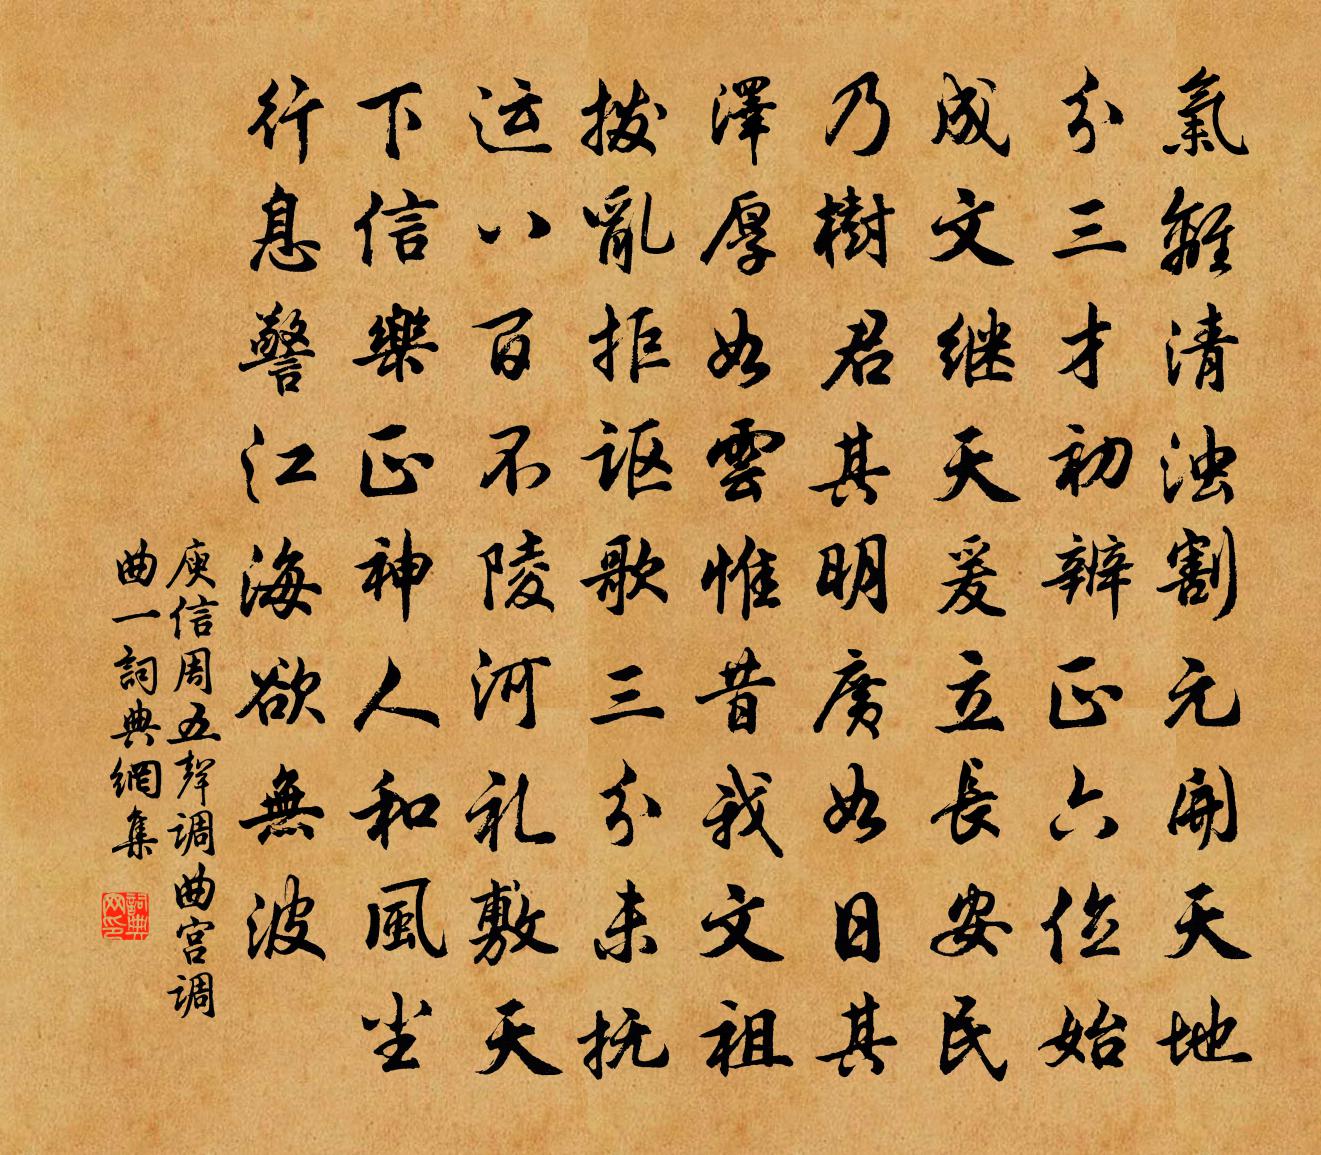 氣離清浊割元開天地
分三才初辨正六位始
成文继天爰立長安民
乃樹君其明廣如日其
澤厚如雲惟昔我文祖
撥亂拒讴歌三分未抚
运八百不陵河礼敷天
下信樂正神人和風尘
行息警江海欲無波
庾信周五聲调曲宫调
曲一詞典網集
詞典网印